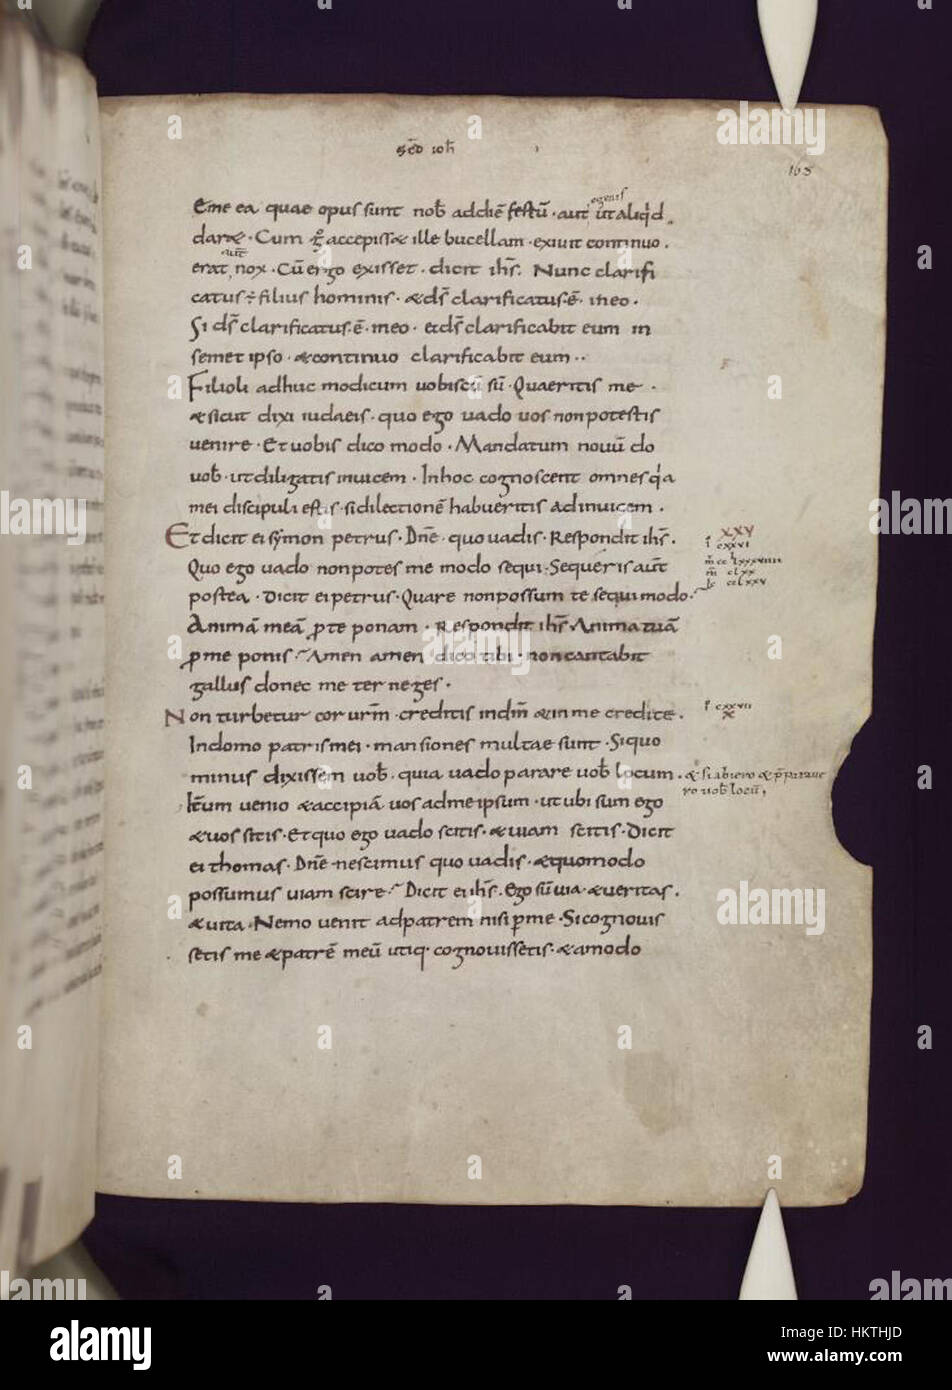 scd ioh
168
Eme ea quae opus sunt nob̄ addiē festū · aut ut aliq'd
egenis
daret · Cum g̊ accepisset ille bucellam · exiuit continuo .
erat nox · Cū ergo exisset · dicit ih̄s . Nunc clarifi
aut̄
catus ÷ filius hominis · & ds̄ clarificatus·ē· in eo ·
Si ds̄ clarificatus·ē· in eo · et ds̄ clarificabit eum in
semet ipso · & continuo clarificabit eum ··
Filioli adhuc modicum uobiscū sū · Quaeritis me ·
& sicut dixi iudaeis · quo ego uado uos non potestis
uenire · Et uobis dico modo · Mandatum nouū do
uob̄ · ut diligatis inuicem · In hoc cognoscent omnes q'a
mei discipuli estis · si dilectionē habueritis ad inuicem .
Et dicit ei symon petrus · Dn̄e · quo uadis · Respondit ih̄s .
XXV
cxxvi
Quo ego uado non potes me modo sequi · Sequeris aut̄
m̄ cclxxxviiii
m̄ clxx
postea · Dicit ei petrus · Quare non possum te sequi modo ·
cclxxv
Animā meā p te ponam · Respondit ih̄s Anima tuā
p me ponis · Amen amen dico tibi · non cantabit
gallus donec me ter neges ·
Non turbetur cor ur̄m · creditis in dm̄ & in me credite .
cxxvii
x
In domo patris mei · mansiones multae sunt · Si quo
minus dixissem uob̄ · quia uado parare uob̄ locum .
& si abiero & p̄paraue
ro uob̄ locū,
It̄um uenio & accipiā uos ad me ipsum · ut ubi sum ego
& uos sitis · Et quo ego uado scitis · & uiam scitis · Dicit
ei thomas · Dn̄e · nescimus quo uadis · & quomodo
possumus uiam scire · Dicit ei ih̄s . Ego sū uia · & ueritas .
& uita · Nemo uenit ad patrem nisi p me · Si cognouis
setis me & patrē meū utiq · cognouissetis · & amodo
alamy
Image ID: HKTHJD
www.alamy.com